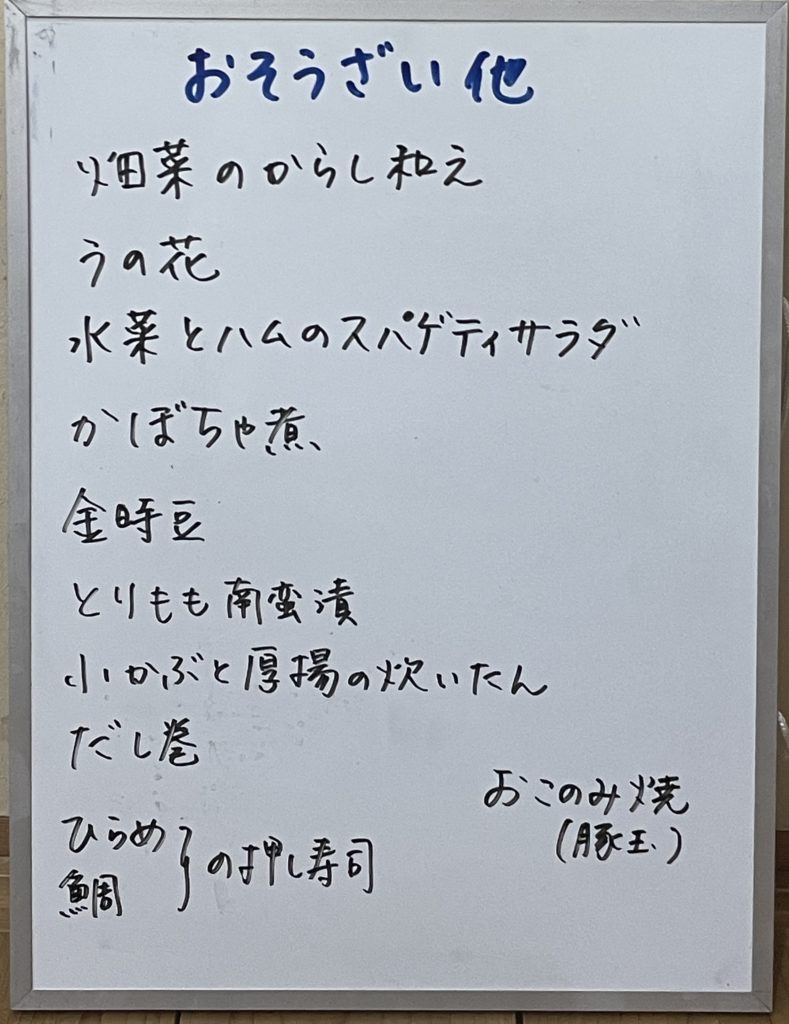 おそうざい他
畑菜のからし和え
うの花
水菜とハムのスパゲティサラダ
かぼちゃ煮
金時豆
とりもも南蛮漬
小かぶと厚揚の炊いたん
だし巻
ひらめ
鯛
}の押し寿司
おこのみ焼
(豚玉)